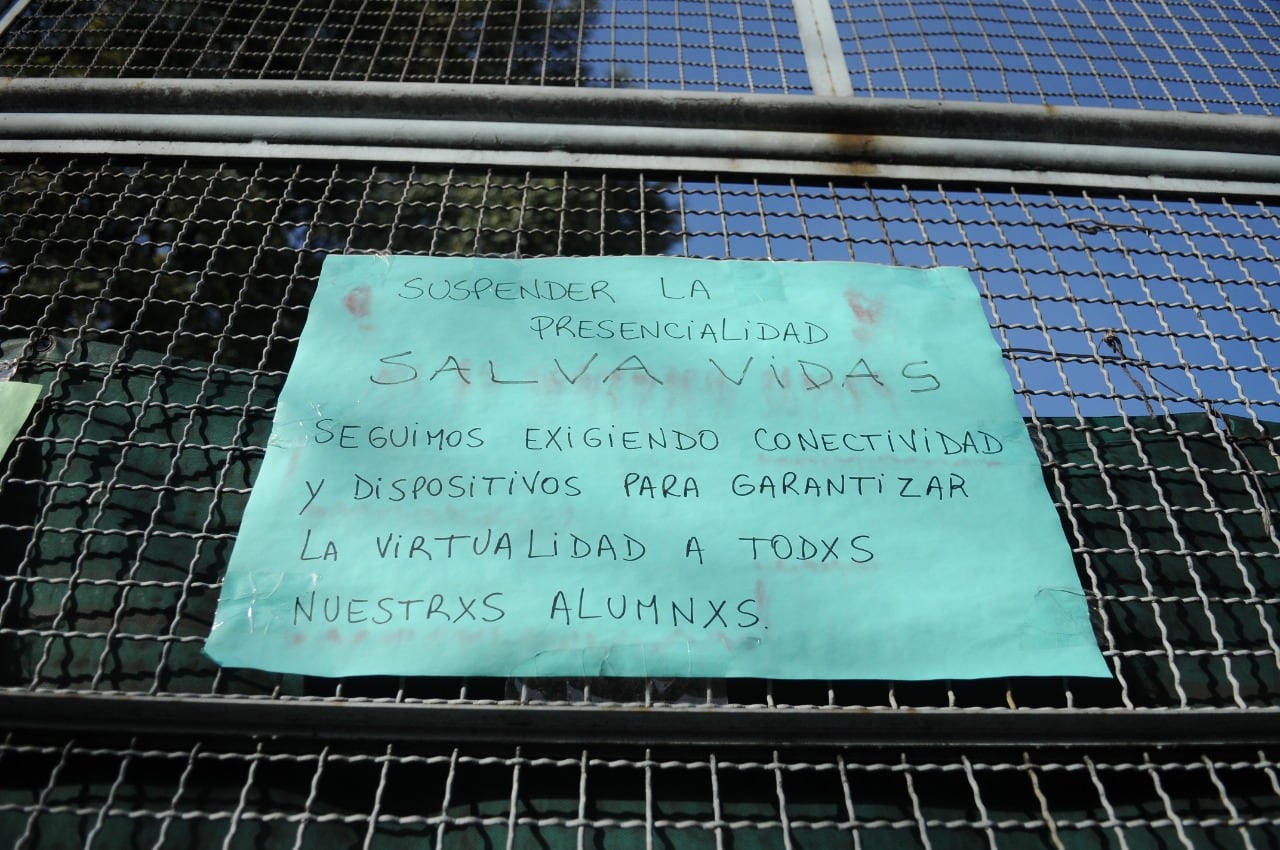 SUSPENDER LA
PRESENCIALIDAD
SALVA VIDAS
SEGUIMOS EXIGIENDO CONECTIVIDAD
Y DISPOSITIVOS PARA GARANTIZAR
LA VIRTUALIDAD A TODXS
NUESTRXS ALUMNXS.